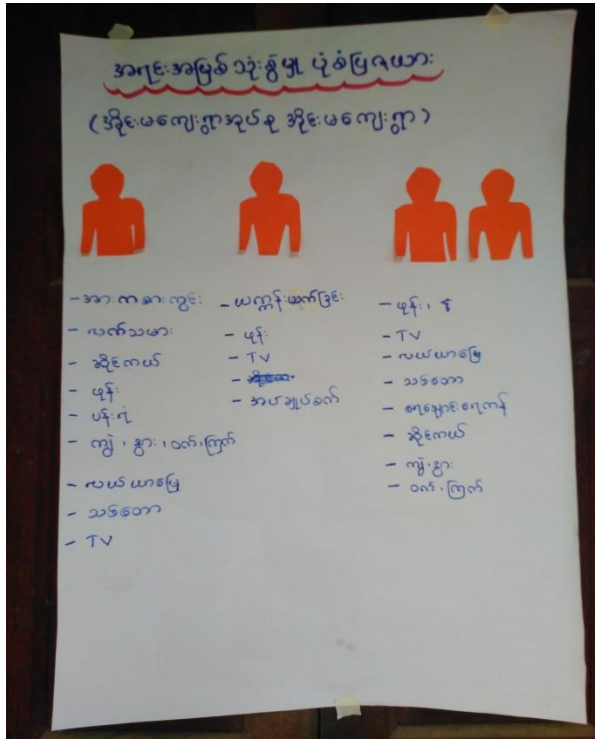 အရင်းအမြစ်သုံးစွဲမှု ပုံစံပြဇယား
(အိုင်းမကျေးရွာအုပ်စု အိုင်းမကျေးရွာ)
- အားကစားကွင်း
- လက်သမား
- ဆိုင်ကယ်
- ဖုန်း
- ပန်းရံ
- ကျွဲ၊ နွား၊ ဝက်၊ ကြက်
- လယ်ယာမြေ
- သစ်တော
- TV
- ယက္ကန်းယုက်ခြင်း
- ဖုန်း
- TV
- အပ်ချုပ်စက်
- ဖုန်း၊
- TV
- လယ်ယာမြေ
- သစ်တော
- ရေချောင်းရေကန်
- ဆိုင်ကယ်
- ကျွဲ၊ နွား
- ဝက်၊ ကြက်